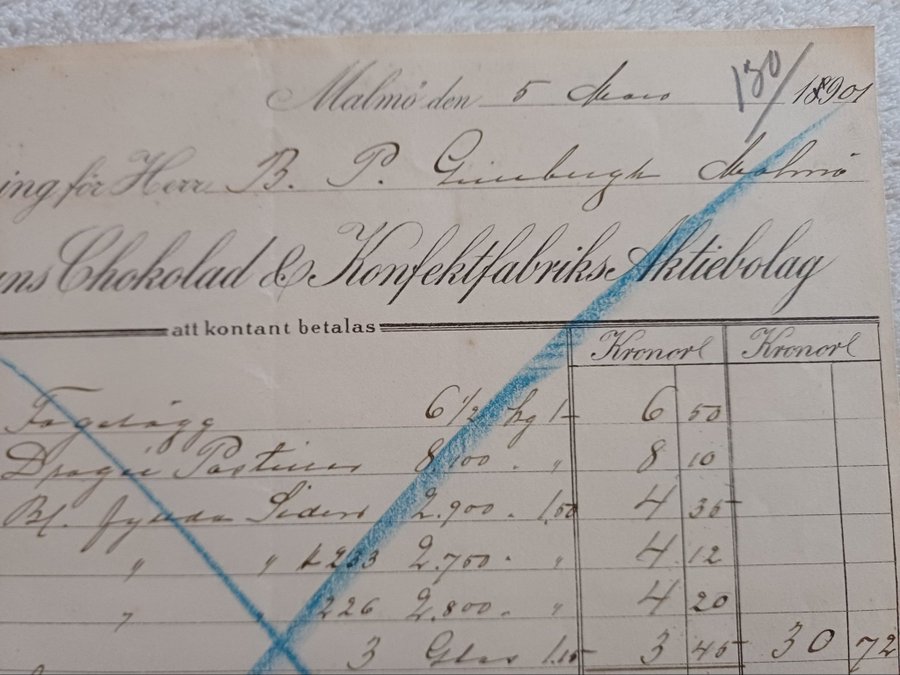 Malmö den 5 Mars 130/ 18901
ing för Herr B. P. Malmö
ns Chokolad & Konfektfabriks Aktiebolag
att kontant betalas
Kronor Kronor
6 1/2 kg 1- 6 50
8,100 " " 8 10
Bl. fyllda 2,900 " 1,50 4 35
" " 233 2,750 " " 4 12
" 226 2,800 " " 4 20
3 Glas 1.15 3 45 30 72